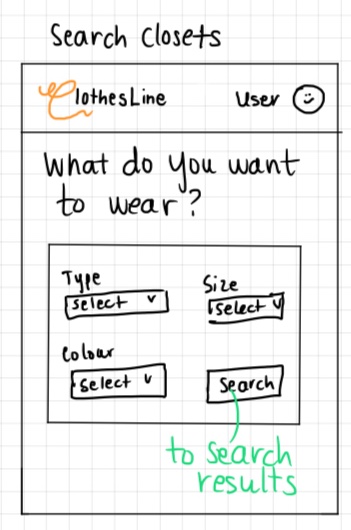 Search Closets
ClothesLine User
What do you want
to wear?
Type
select
Size
select
Colour
select
Search
to search
results